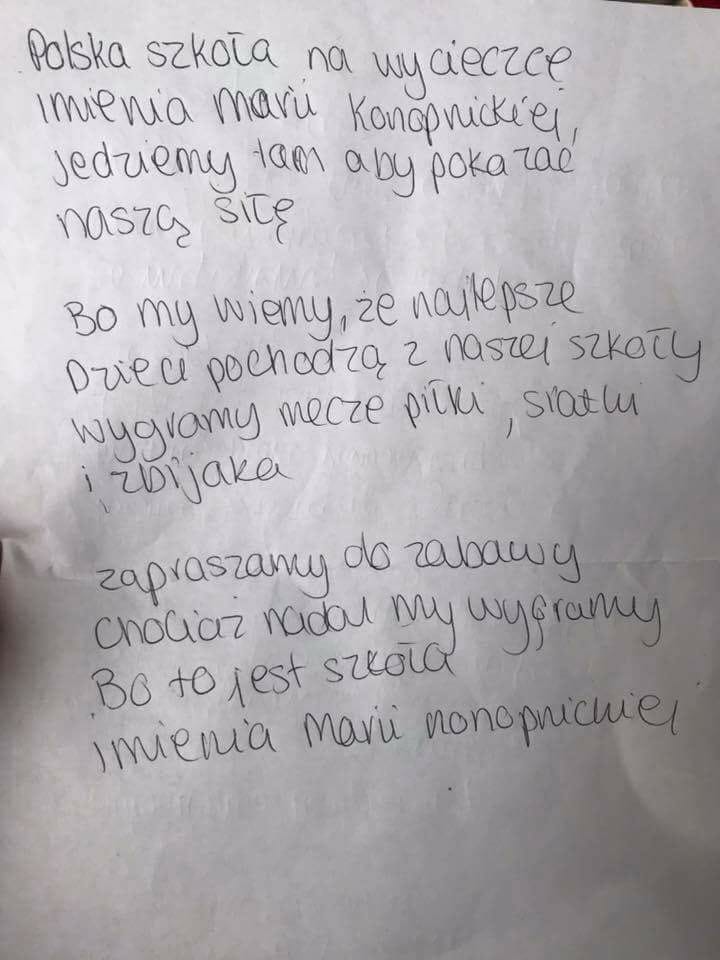 Polska szkoła na wycieczcę
imienia Marii Konopnickiej,
jedziemy tam aby pokazać
naszą siłę
Bo my wiemy, że najlepsze
Dzieci pochodzą z naszej szkoły
wygramy mecze piłki, siatki
i zbijaka
zapraszamy do zabawy
chociaż nadal my wygramy
Bo to jest szkoła
imienia Marii Konopnickiej